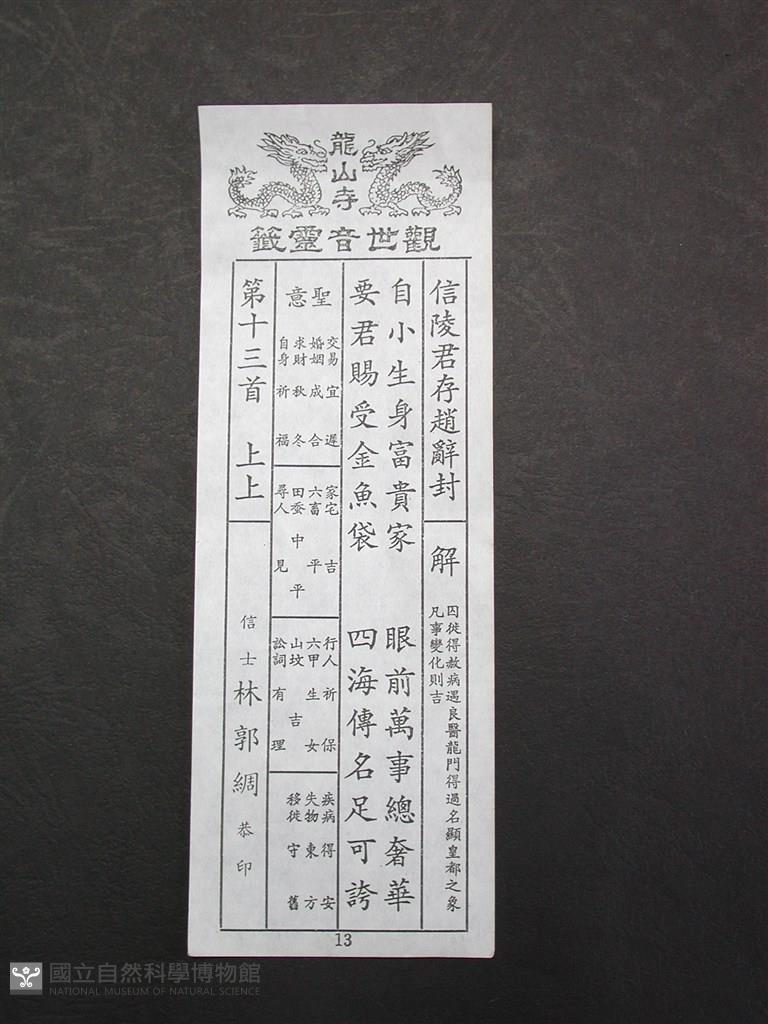 龍山寺
觀世音靈籤
信陵君存趙辭封
解
囚徙得赦病遇良醫龍門得過名顯皇都之象
凡事變化則吉
自小生身富貴家 眼前萬事總奢華
要君賜受金魚袋 四海傳名足可誇
聖意
交易 宜遲
婚姻 成合
求財 秋冬
自身 祈福
家宅 吉
六畜 平
田蚕 中平
尋人 見
行人 祈保
六甲 生女
山坟 吉
訟詞 有理
疾病 得安
失物 東方
移徙 守舊
第十三首 上上
信士 林郭綢 恭印
13
國立自然科學博物館
NATIONAL MUSEUM OF NATURAL SCIENCE